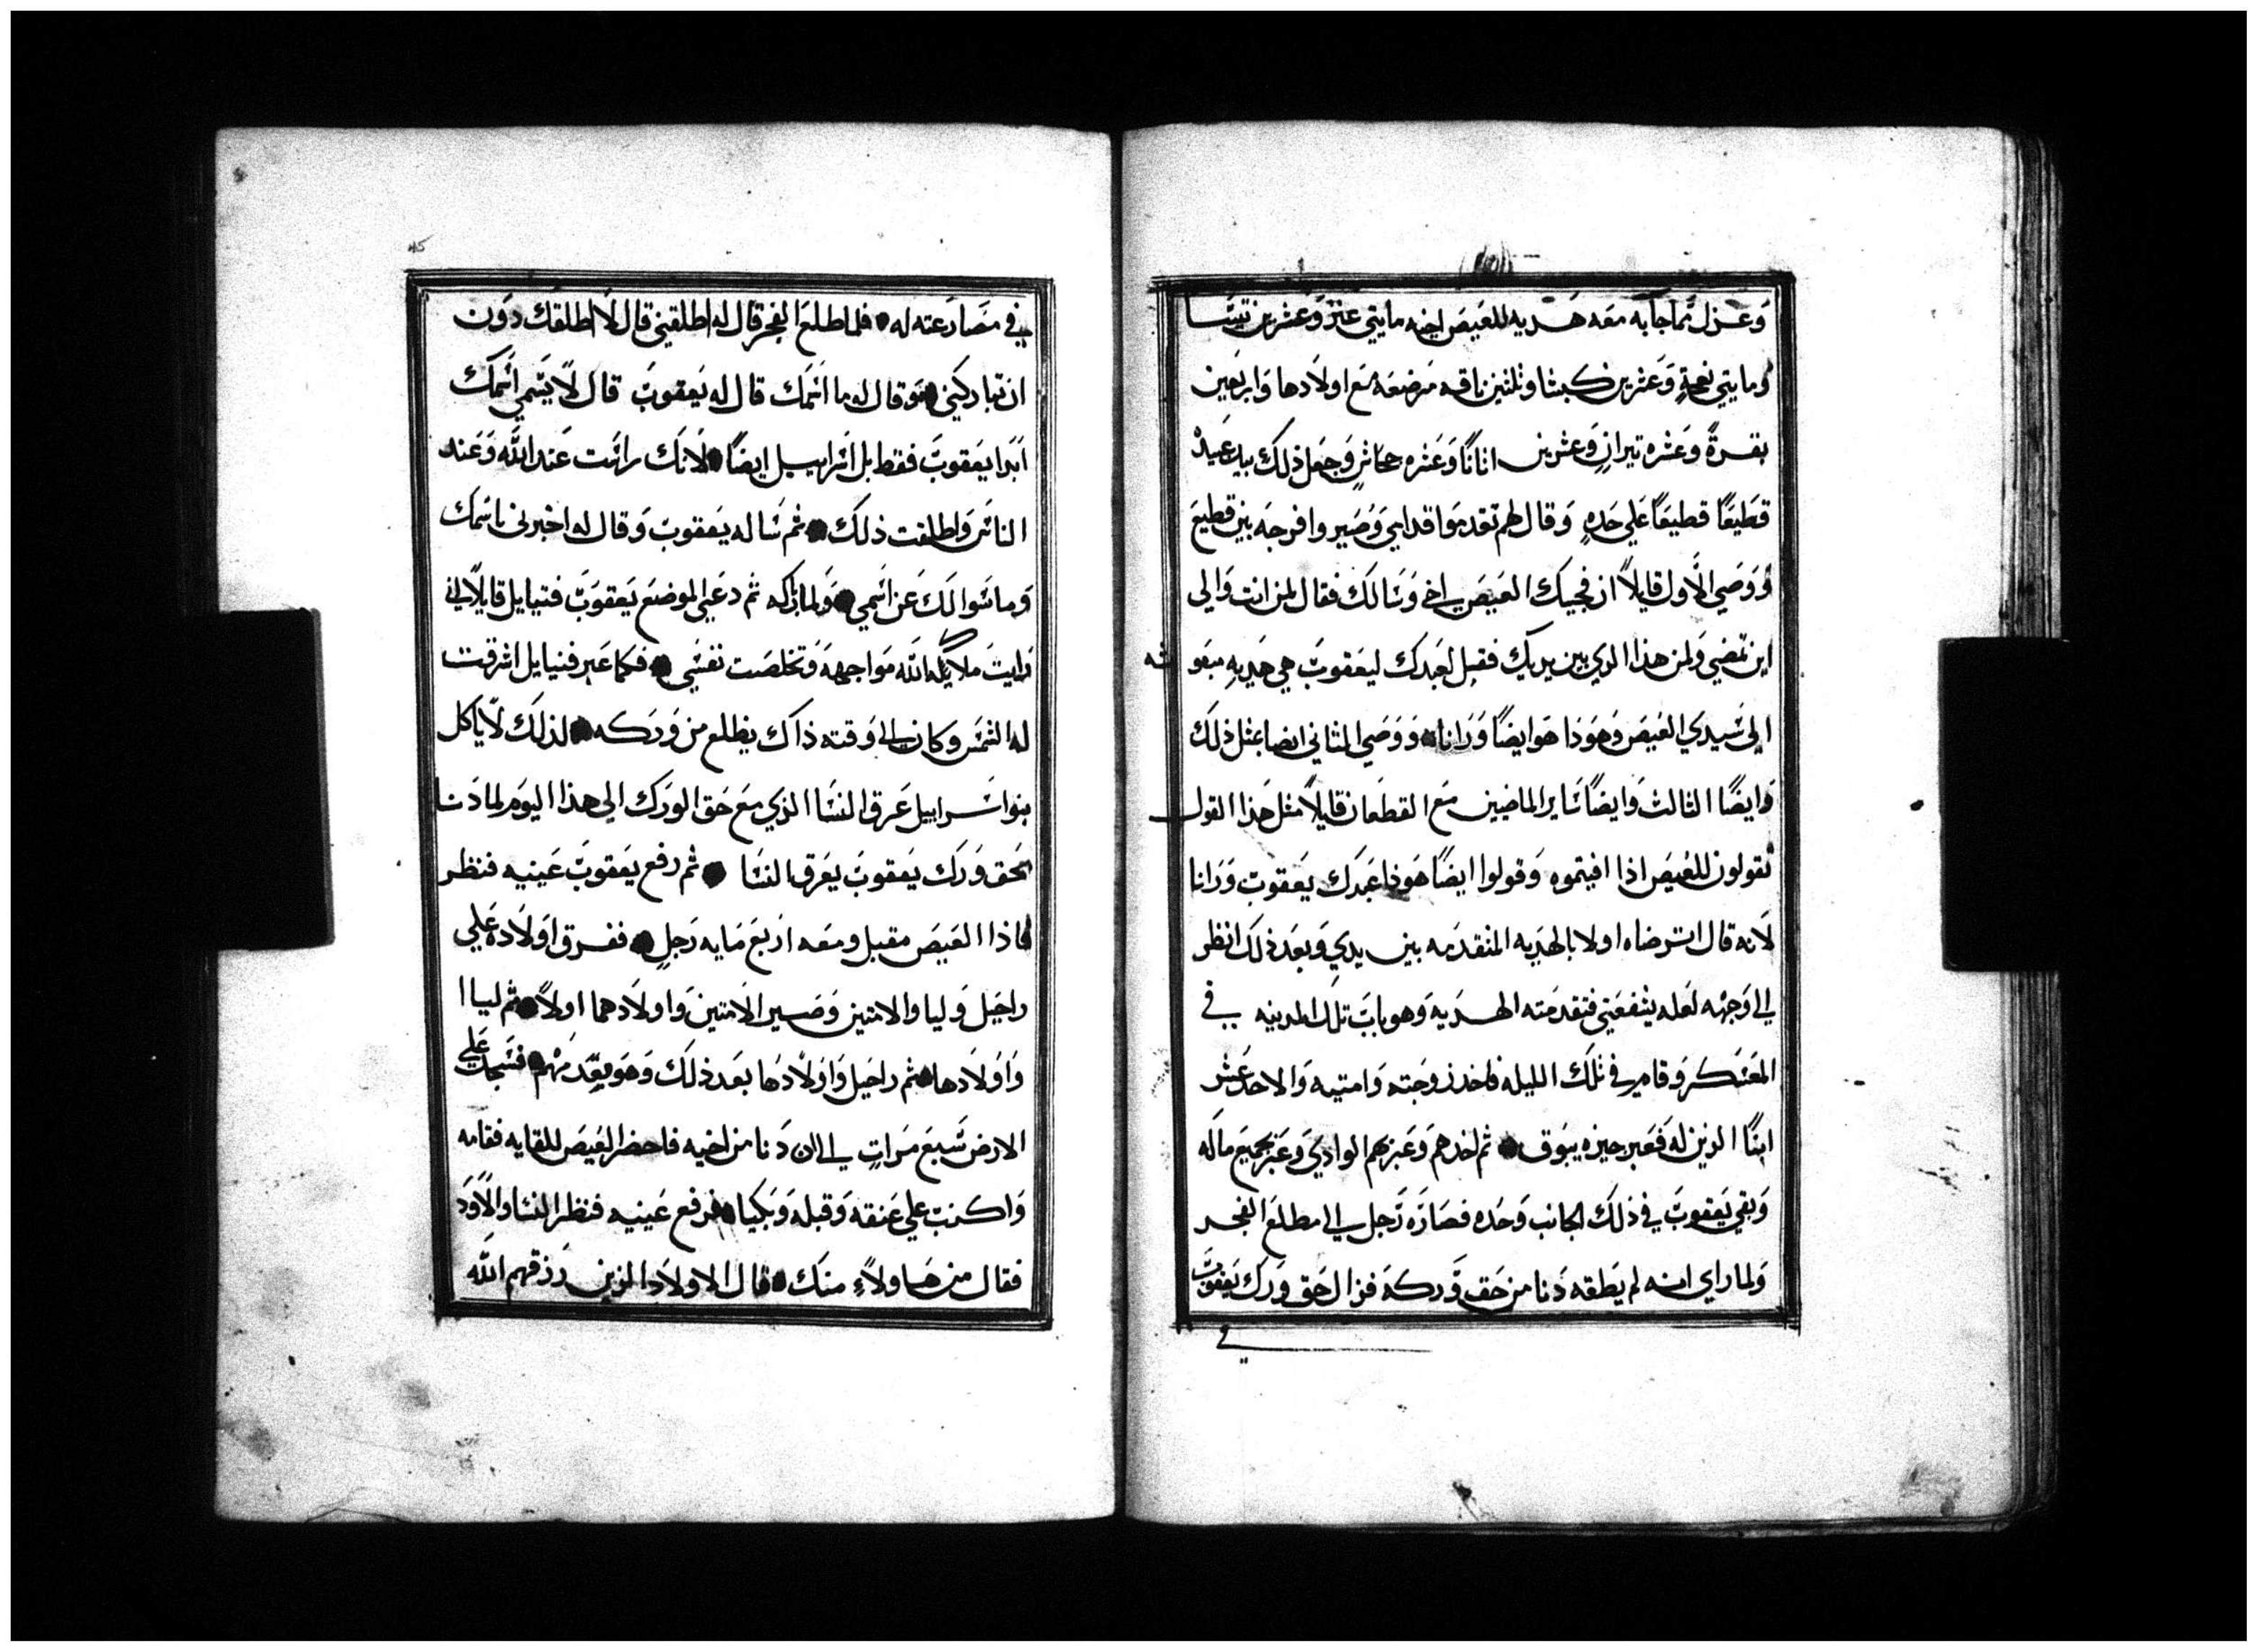 وعزل مما جابه معه هديه للعيص اخيه مايتي عنز وعشرين تيسا
ومايتي نعجة وعشرين كبشا وثلثين ناقه مرضعه مع اولادها واربعين
بقرة وعشره تيران وعشرين اتانا وعشره جحاش وجعل ذلك بيد عبيده
قطيعا قطيعا على حده وقال لهم تقدموا قدامي وصيروا فرجه بين قطيع
ووصي الاول قايلا ان فجيك العيص اخي وسالك فقال لمن انت والى
اين تمضي ولمن هذا الذي بين يديك فقل لعبدك ليعقوب هي هديه مبعوثه
الى سيدي العيص وهوذا هو ايضا ورانا ووصي الثاني ايضا بمثل ذلك
وايضا الثالث وايضا ساير الماضيين مع القطعان قايلا مثل هذا القول
تقولون للعيص اذا لقيتموه وقولوا ايضا هوذا عبدك يعقوب ورانا
لانه قال استرضاه اولا بالهديه المتقدمه بين يدي وبعد ذلك انظر
الى وجهه لعله يشفعني فتقدمته الهديه وهو بات تلك المدينه في
المعسكر وقام في تلك الليله فاخذ زوجته وامتيه والاحد عشر
ابنا الذين له فعبر جيزه يبوق ثم اخذهم وعبرهم الوادي وعبر بجميع ماله
وبقي يعقوب في ذلك الجانب وحده فصارعه رجل الى مطلع الفجر
ولما راي انه لم يطقه دنا من حق وركه فزال حق ورك يعقوب
في
45
في مصارعته له فلما طلع الفجر قال له اطلقني قال لا اطلقك دون
ان تباركني وقال له ما اسمك قال له يعقوب قال لا يسمي اسمك
ابدا يعقوب فقط بل اسراييل ايضا لانك رائت عند الله وعند
الناس واطلقت ذلك ثم ساله يعقوب وقال له اخبرني ما اسمك
وما سوالك عن اسمي ولما باركه ثم دعي الموضع يعقوب فنيايل قايلا اني
رايت ملايكه الله مواجهة وتخلصت نفسي فكما عبر فنيايل اشرقت
له الشمس وكان الى وقته ذاك يظلع من وركه لذلك لا ياكل
بنوا سراييل عرق النسا الذي مع حق الورك الى هذا اليوم لما دنا
بحق ورك يعقوب يعرق النسا ثم رفع يعقوب عينيه فنظر
فاذا العيص مقبل ومعه اربع مايه رجل ففرق اولاده علي
راحيل وليا والامتين وصير الامتين واولادهما اولا ثم ليا ا
واولادها ثم راحيل واولادها بعد ذلك وهو تقدمهم فسجد علي
الارض سبع مرات الى ان دنا من اخيه فاحضر العيص للقايه فقامه
واكرنب علي عنقه وقبله وبكيا ورفع عينيه فنظر النسا والاولاد
فقال من هاولاء منك قال الاولاد الذين رزقهم الله